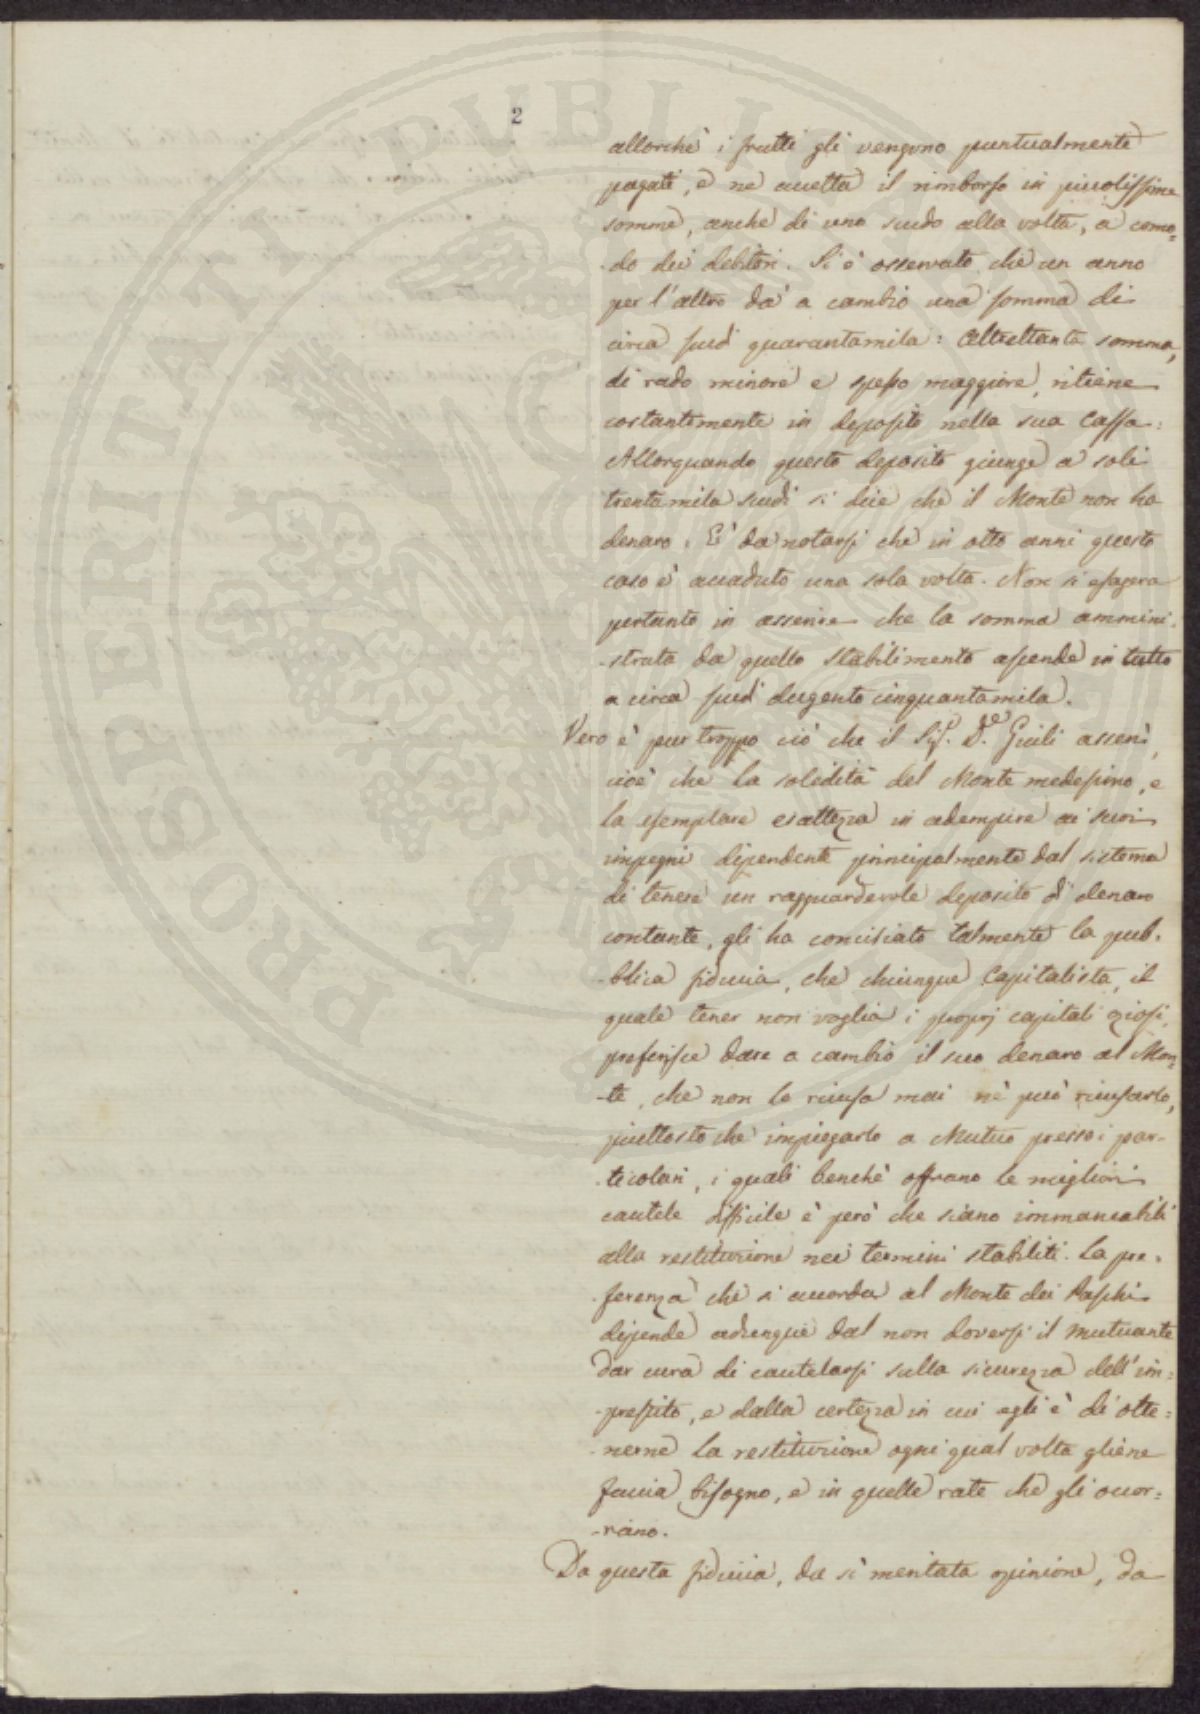 2
allorchè i frutti gli vengono puntualmente
pagati, e ne accetta il rimborso in piccolissime
somme, anche di uno scudo alla volta, a como-
-do dei debitori. Si è osservato che un anno
per l'altro dà a cambio una somma di
circa scudi quarantamila: Altrettanta somma,
di rado minore e spesso maggiore, ritiene
costantemente in deposito nella sua Cassa:
Allorquando questo deposito giunge a soli
trentamila scudi si dice che il Monte non ha
denaro. È da notarsi che in otto anni questo
caso è accaduto una sola volta. Non si esagera
pertanto in asserire che la somma ammini-
-strata da quello Stabilimento ascende in tutto
a circa scudi dugento cinquantamila.
Vero è pur troppo ciò che il Sig.r D.re Guili asserì,
cioè che la solidità del Monte medesimo, e
la esemplare esattezza in adempire ai suoi
impegni dipendente principalmente dal sistema
di tenere un ragguardevole deposito di denaro
contante, gli ha conciliato talmente la pub-
-blica fiducia, che chiunque Capitalista, il
quale tener non voglia i proprj capitali oziosi,
preferisce dare a cambio il suo denaro al Mon-
-te, che non lo ricusa mai nè può ricusarlo,
piuttosto che impiegarlo a Mutuo presso i par-
-ticolari, i quali benchè offrano le migliori
cautele difficile è però che siano immancabili
alla restituzione nei termini stabiliti. La pre-
-ferenza che si accorda al Monte dei Paschi
dipende adunque dal non doversi il Mutuante
dar cura di cautelarsi sulla sicurezza dell'im-
-prestito, e dalla certezza in cui egli è di otte-
-nerne la restituzione ogni qual volta gliene
faccia bisogno, e in quelle rate che gli occor-
-rano.
Da questa fiducia, da sì meritata opinione, da
PROSPERITATI PUBLICAE